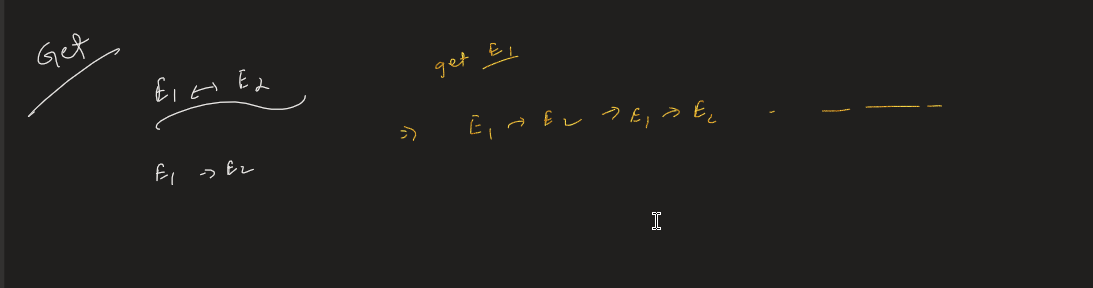 Get
E1 ↔ E2
E1 → E2
get E1
⇒ E1 → E2 → E1 → E2 . — — —